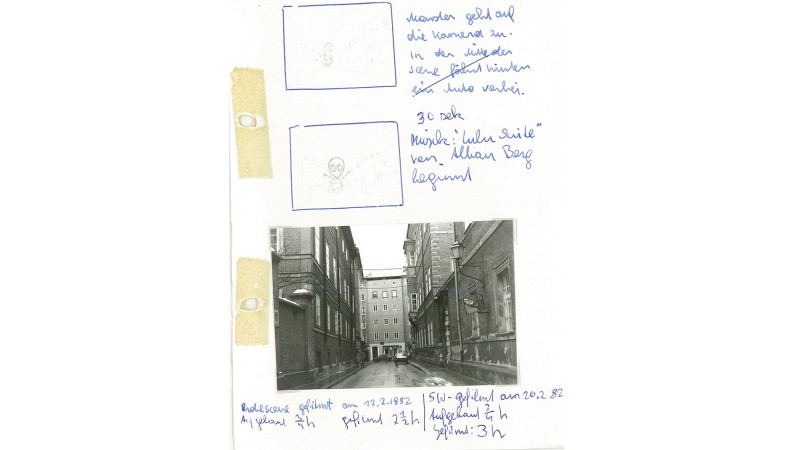 Monster geht auf
die Kamera zu.
In der Mitte der
Scene fährt hinten
ein Auto vorbei.
30 sek
Musik: "Lulu Suite"
von Alban Berg
beginnt
gefilmt am 12.2.1982
Aufgebaut 3/4 h gefilmt 2 1/2 h
SW-gefilmt am 20.2.82
Aufgebaut 3/4 h
Gefilmt: 3 h